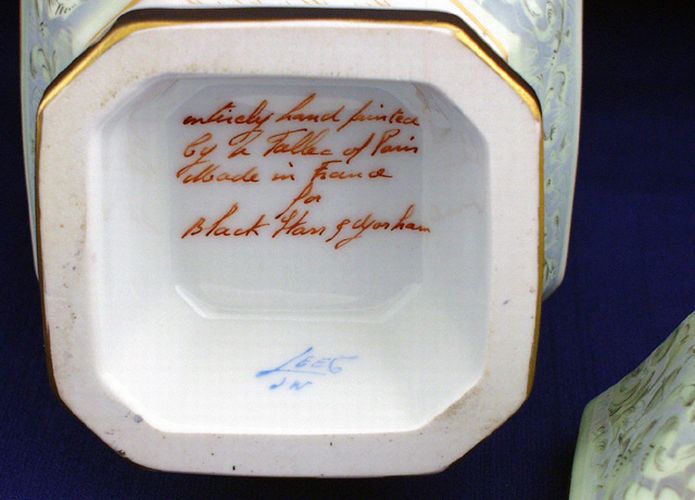 entirely hand painted
by Le Tallec of Paris
Made in France
for
Black Starr & Gorham